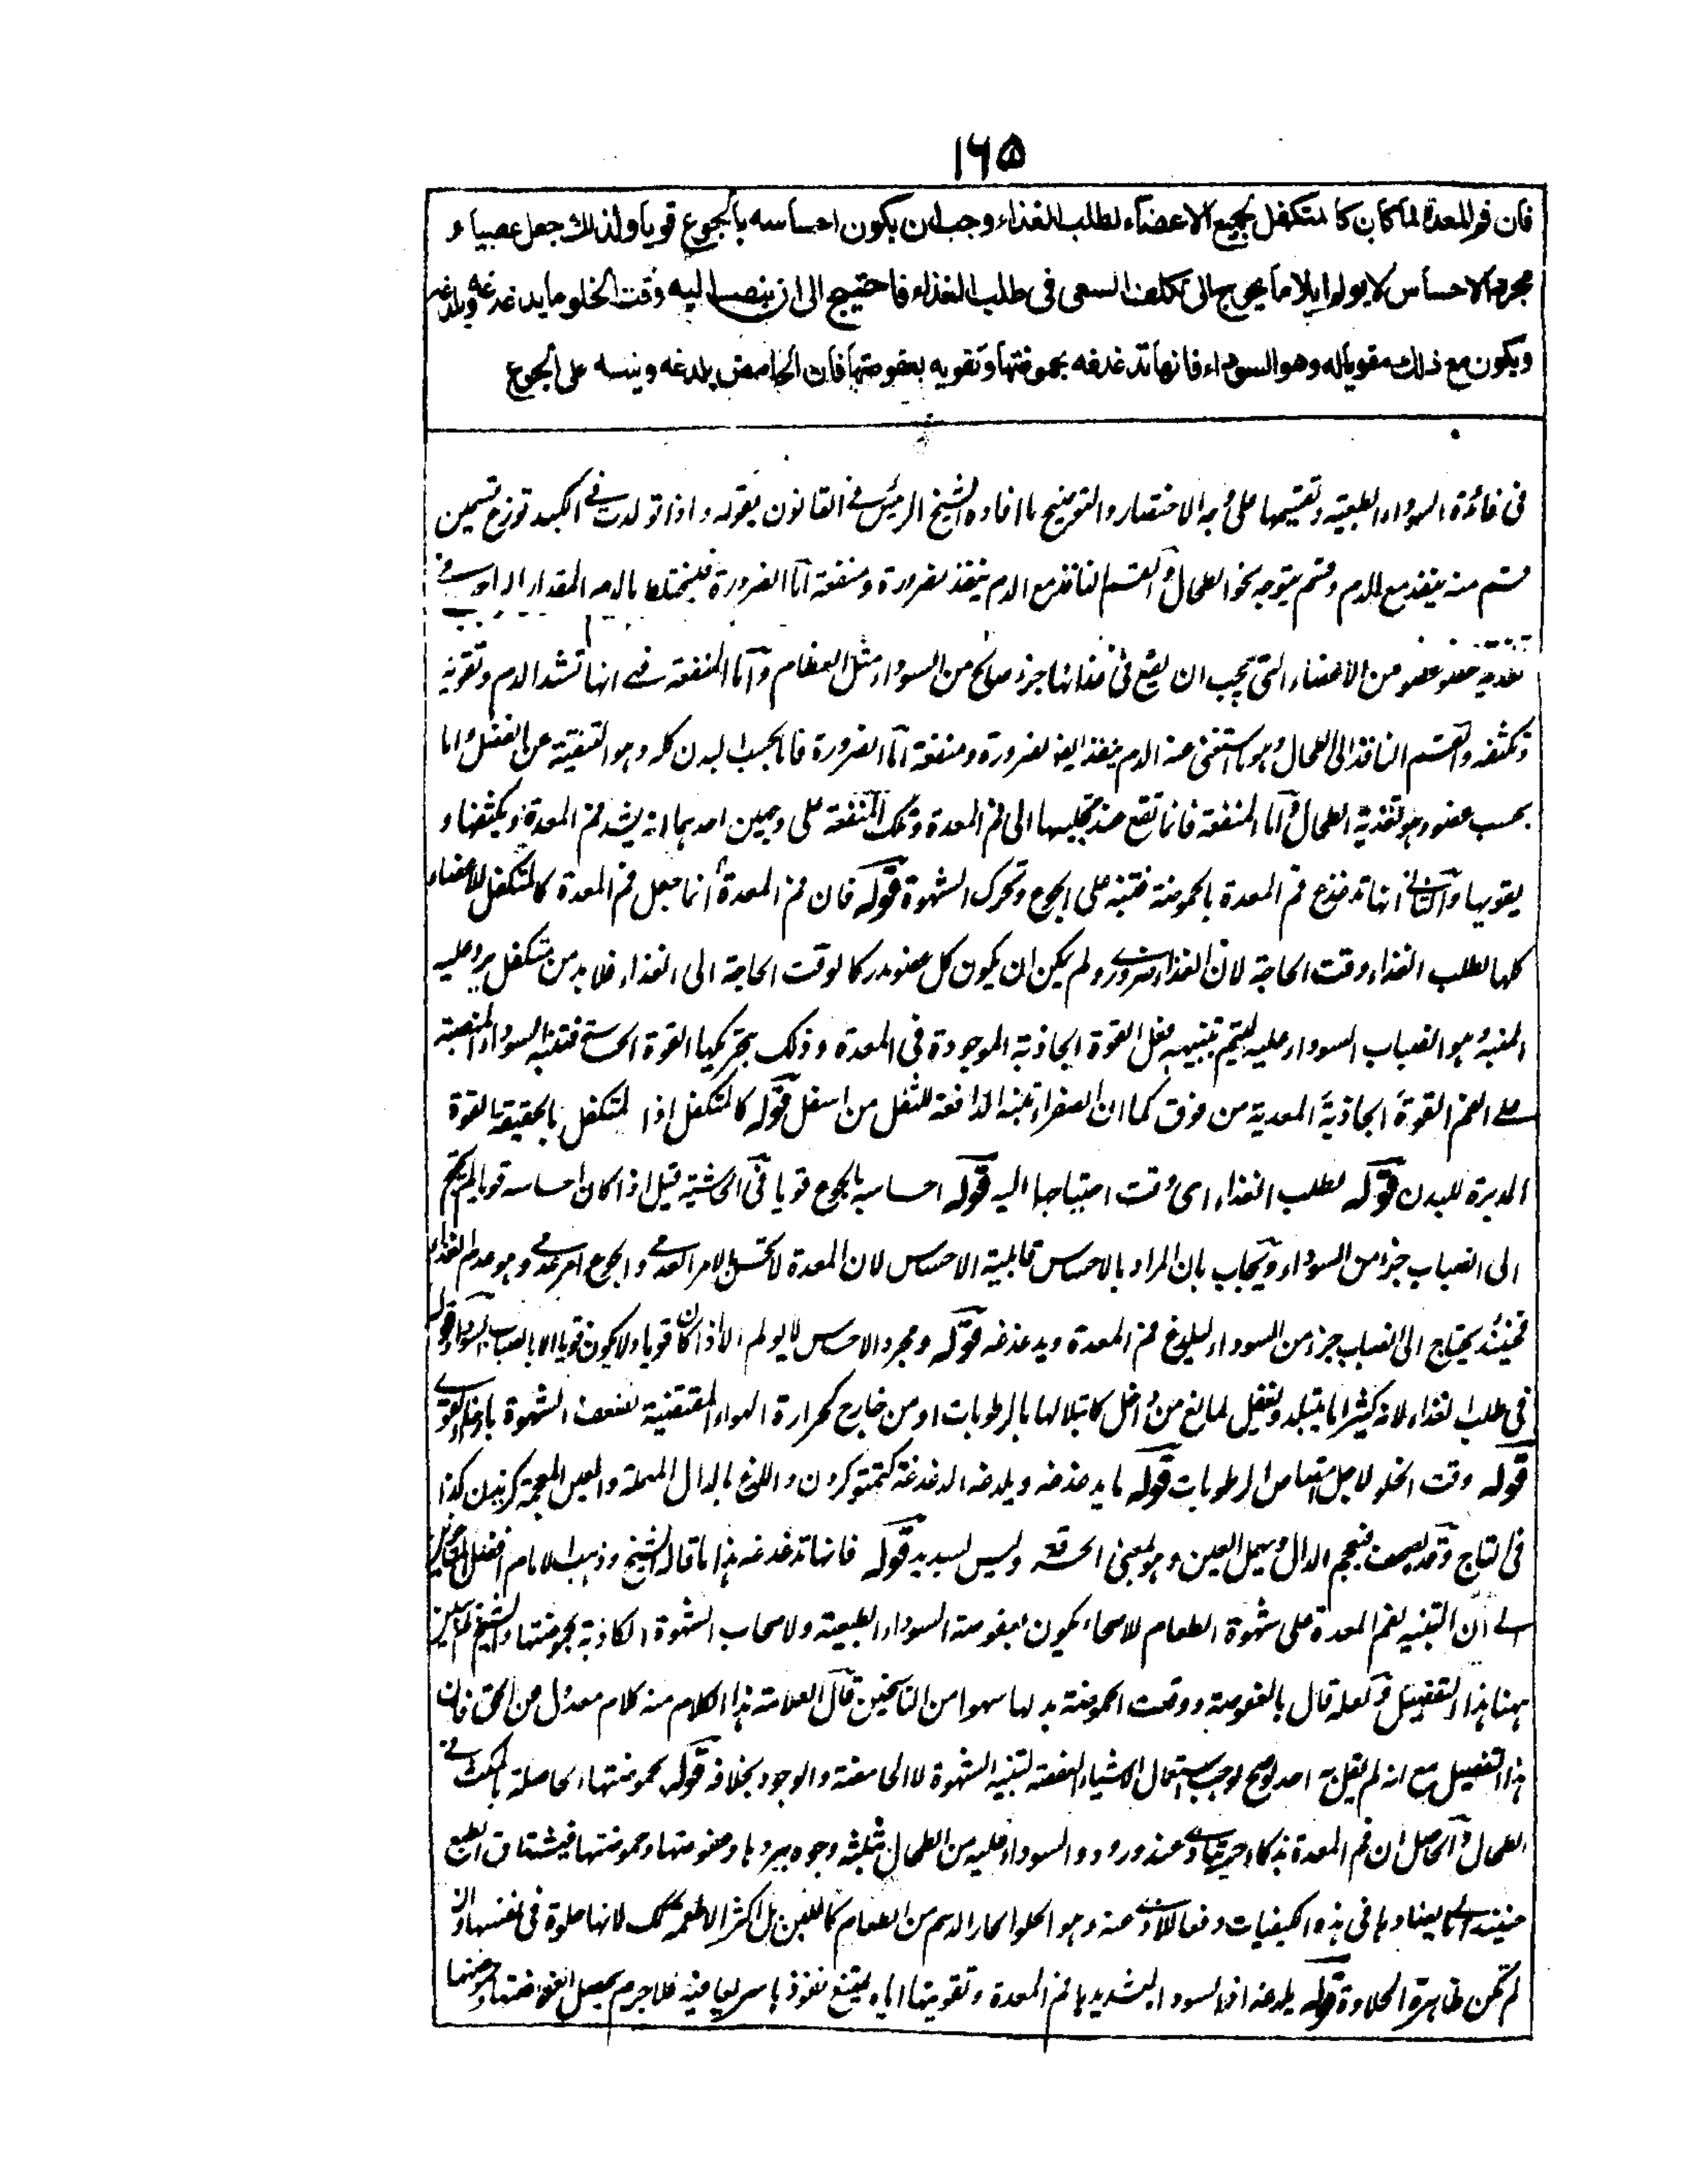 ١٦٥
فان فم المعدة لما كان كالمتكفل بجميع الاعضاء لطلب الغذاء وجب ان يكون احساسه بالجوع قويا ولذلك جعل عصبيا و
مجرد الاحساس لا يولم ايلاما يحوج الى تكلف السعى فى طلب الغذاء فاحتيج الى ان ينصب اليه وقت الخلو ما يدغدغه ويلدغه
ويكون مع ذلك مقويا له وهو السوداء فانها تدغدغه بحموضتها وتقويه بعفوصتها فان الحامض يلدغه وينبه على الجوع
فى فائدة السوداء الطبعية وتقيمها على وجه الاختصار والتوضيح ما افاده الشيخ الرئيس فى القانون بقوله واذا تولدت فى الكبد توزع قسمين
قسم منه ينفذ مع الدم وقسم يتوجه نحو الطحال والقسم النافذ مع الدم ينفذ لضرورة ومنفعة اما الضرورة فليختلط بالدم المقدار الواجب فى
تغذيه عضو عضو من الاعضاء التى يجب ان يقع فى غذائها جزء صالح من السوداء مثل العظام واما المنفعة فهى انها تشد الدم وتقويه
وتكثفه والقسم النافذ الى الطحال وهو ما استغنى عنه الدم ينفذ ايضا لضرورة ومنفعة اما الضرورة فاما بحسب البدن كله وهو التنقية عن الفضل واما
بحسب عضو وهو تغذية الطحال واما المنفعة فانما تقع عند تحليبها الى فم المعدة وتلك المنفعة على وجهين احدهما انه يشد فم المعدة ويكثفها و
يقويها والثانى انها تدغدغ فم المعدة بالحموضة فتنبه على الجوع وتحرك الشهوة قوله فان فم المعدة انما جعل فم المعدة كالمتكفل للاعضاء
كلها لطلب الغذاء وقت الحاجة لان الغذاء ضرورى ولم يكن ان يكون كل عضو مدركا لوقت الحاجة الى الغذاء فلا بد من متكفل يرد عليه
المنبه وهو انصباب السوداء عليه ليتم بتنبيهه فعل القوة الجاذبة الموجودة فى المعدة وذلك بتحريكها القوة الحساسة فتنبه السوداء المنصبة
على الفم القوة الجاذبة المعدية من فوق كما ان الصفراء تنبه الدافعة للثفل من اسفل قوله كالمتكفل اذا المتكفل بالحقيقة القوة
المدبرة للبدن قوله لطلب الغذاء اى وقت احتياجها اليه قوله احساسه بالجوع قويا فى الحاشية قيل اذا كان احساسه قويا لم يحتج
الى انصباب جزء من السوداء ويجاب بان المراد بالاحساس قابلية الاحساس لان المعدة لا تحس الامر العدمى والجوع امر عدمى وهو عدم الغذاء
فحينئذ يحتاج الى انصباب جزء من السوداء ليلدغ فم المعدة ويدغدغه قوله ومجرد الاحساس لا يولم الا اذا كان قويا ولا يكون قويا الا بانصباب السوداء قوله
فى طلب الغذاء لانه كثيرا ما يتبلد ويغفل لمانع من داخل كابتلالها بالرطوبات او من خارج كحرارة الهواء المقتضية لضعف الشهوة بارخاء القوى
قوله وقت الخلو لاجل امتصاص الرطوبات قوله ما يدغدغه ويلدغه الدغدغة كتمتو كردن واللدغ بالدال المهملة والغين المعجمة گزيدن كذا
فى التاج وقد يصحف فيعجم الدال ويهمل العين وهو بمعنى الحرقة وليس بسديد قوله فانها تدغدغه هذا ما قاله الشيخ وذهب الامام افضل المتاخرين
الى ان التنبيه لفم المعدة على شهوة الطعام للاصحاء يكون بعفوصة السوداء الطبعية ولاصحاب الشهوة الكاذبة بحموضتها والشيخ لم يبين
ههنا هذا التفصيل ولعله قال بالعفوصة ووقعت الحموضة بدلها سهوا من الناسخين قال العلامة هذا الكلام منه كلام معدول من الحق فان
هذا التفصيل مع انه لم يقل به احد لو صح لوجب استعمال الاشياء العفصة لتنبيه الشهوة لا الحامضة والوجود بخلافه قوله بحموضتها الحاصلة بالمكث فى
الطحال والحاصل ان فم المعدة بذكاء حسها يتاذى عند ورود السوداء عليه من الطحال بثلثة وجوه ببردها وعفوصتها وحموضتها فيشتاق الطبع
حينئذ الى ما يضادها فى هذه الكيفيات دفعا للاذى عنه وهو الحلو الحار الدسم من الطعام كاللبن بل اكثر الاطعمة كك لانها حلوة فى نفسها وان
لم تكن ظاهرة الحلاوة قوله يلدغه اذ السوداء لتشديدها فم المعدة وتقويتها اياه يمتنع نفوذها سريعا فيه فلا جرم يحصل